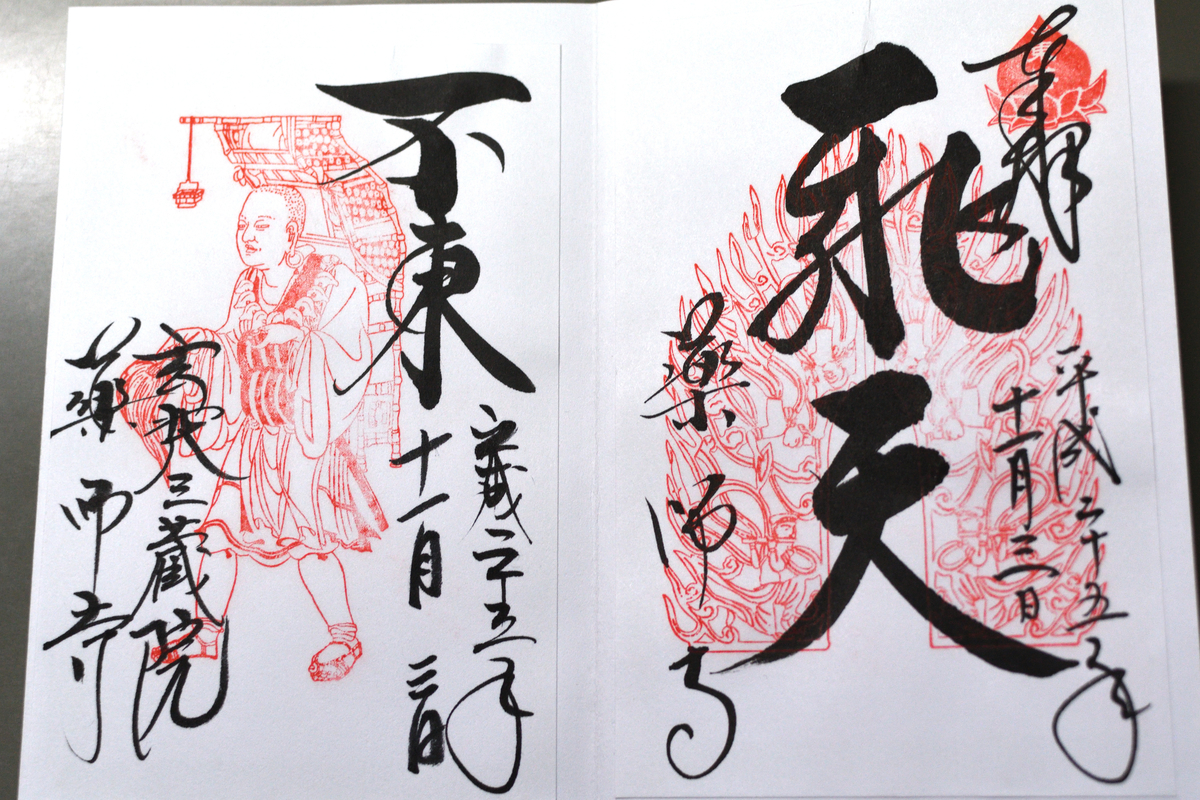 奉拝
平成二十五年
十一月三日
飛天
薬師寺
不東
平成二十五年
十一月三日
玄奘三蔵院
薬師寺